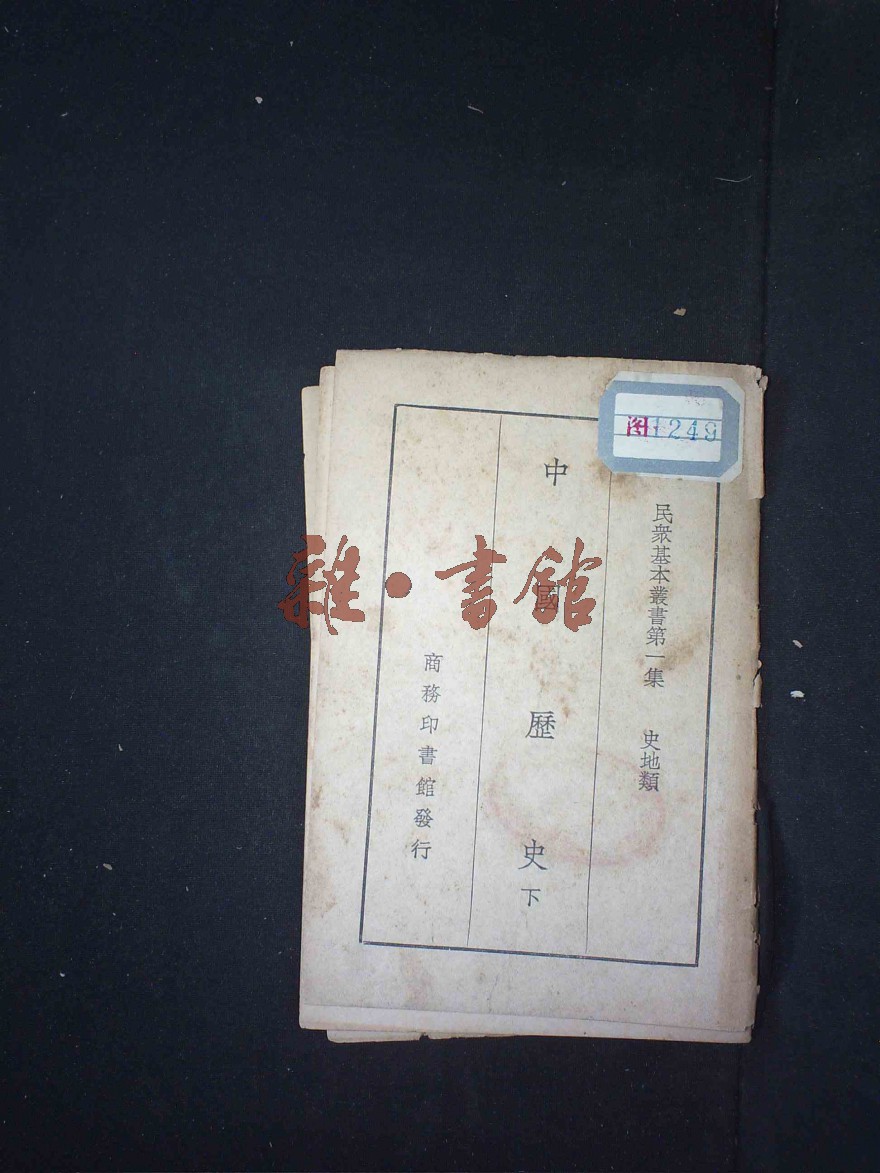 图1249
民衆基本叢書第一集 史地類
中國歷史 下
商務印書館發行
雜·書館